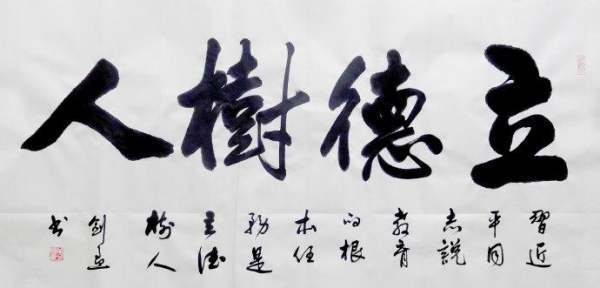 立德樹人
習近
平同
志説
教育
的根
本任
務是
立德
樹人
书